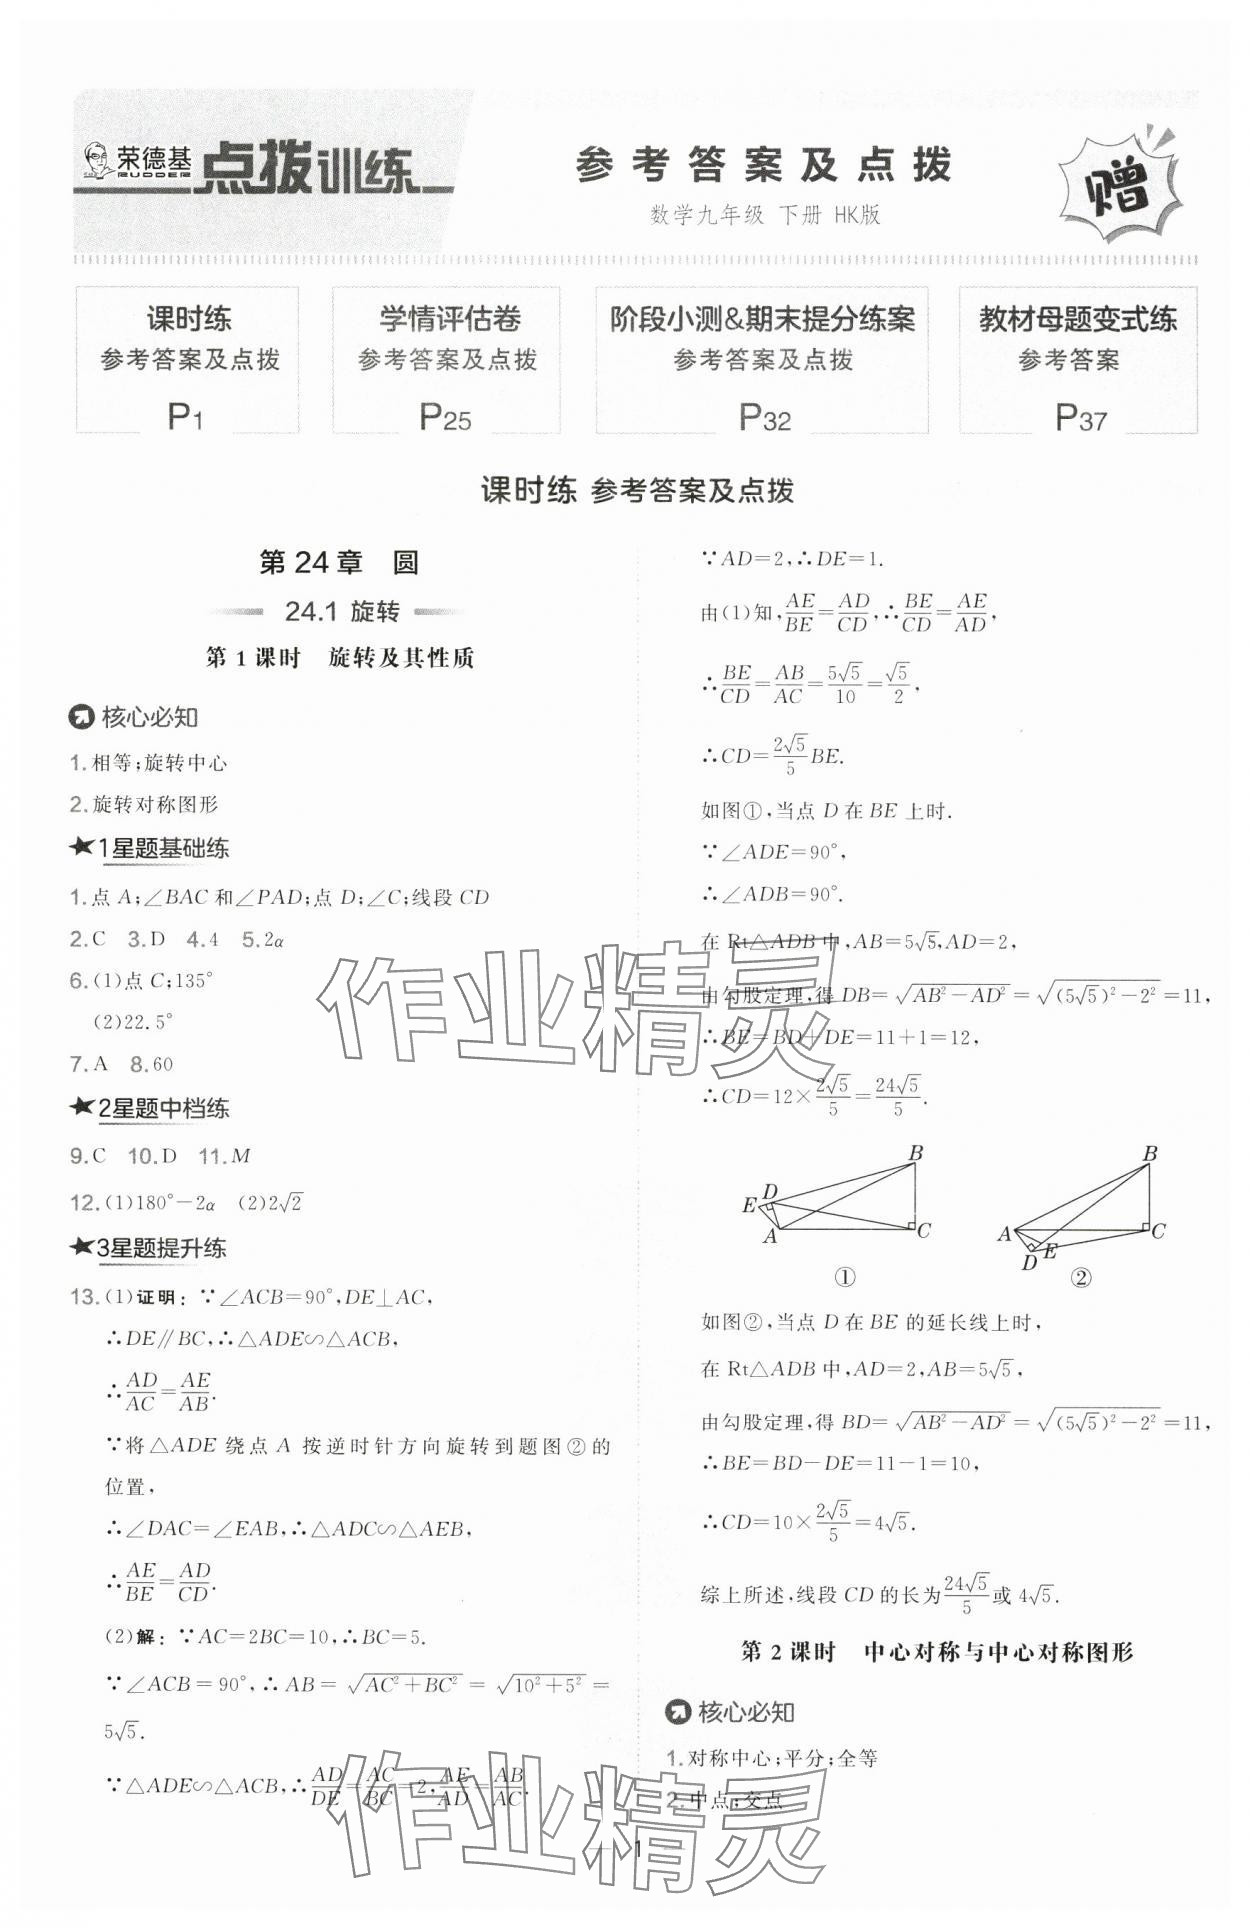 荣德基
RUDDER
点拨训练
参考答案及点拨
数学九年级 下册 HK版
赠
课时练
参考答案及点拨
P1
学情评估卷
参考答案及点拨
P25
阶段小测&期末提分练案
参考答案及点拨
P32
教材母题变式练
参考答案
P37
课时练 参考答案及点拨
第24章 圆
24.1 旋转
第1课时 旋转及其性质
核心必知
1.相等;旋转中心
2.旋转对称图形
★1星题基础练
1.点A;∠BAC和∠PAD;点D;∠C;线段CD
2.C 3.D 4.4 5.2α
6.(1)点C;135°
(2)22.5°
7.A 8.60
★2星题中档练
9.C 10.D 11.M
12.(1)180°-2α (2)2√2
★3星题提升练
13.(1)证明:∵∠ACB=90°,DE⊥AC,
∴DE∥BC,∴△ADE∽△ACB,
∴AD/AC=AE/AB.
∵将△ADE绕点A按逆时针方向旋转到题图②的
位置,
∴∠DAC=∠EAB,∴△ADC∽△AEB,
∴AE/BE=AD/CD.
(2)解:∵AC=2BC=10,∴BC=5.
∵∠ACB=90°,∴AB=√(AC²+BC²)=√(10²+5²)=
5√5.
∵△ADE∽△ACB,∴AD/DE=AC/BC=2,AE/AD=AB/AC.
∵AD=2,∴DE=1.
由(1)知,AE/BE=AD/CD,∴BE/CD=AE/AD,
∴BE/CD=AB/AC=5√5/10=√5/2,
∴CD=2√5/5 BE.
如图①,当点D在BE上时.
∵∠ADE=90°,
∴∠ADB=90°.
在Rt△ADB中,AB=5√5,AD=2,
由勾股定理,得DB=√(AB²-AD²)=√((5√5)²-2²)=11,
∴BE=BD+DE=11+1=12,
∴CD=12×2√5/5=24√5/5.
B
D
E
A
C
①
B
A
C
D
E
②
如图②,当点D在BE的延长线上时,
在Rt△ADB中,AD=2,AB=5√5,
由勾股定理,得BD=√(AB²-AD²)=√((5√5)²-2²)=11,
∴BE=BD-DE=11-1=10,
∴CD=10×2√5/5=4√5.
综上所述,线段CD的长为24√5/5或4√5.
第2课时 中心对称与中心对称图形
核心必知
1.对称中心;平分;全等
2.中点;交点
1
作业精灵
作业精灵